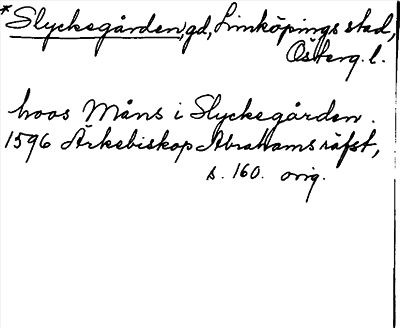 * Slyckegården, gd, Linköpings stad,
Österg. l.
hoos Måns i Slyckegården.
1596 Ärkebiskop Abrahams räfst,
s. 160. orig.